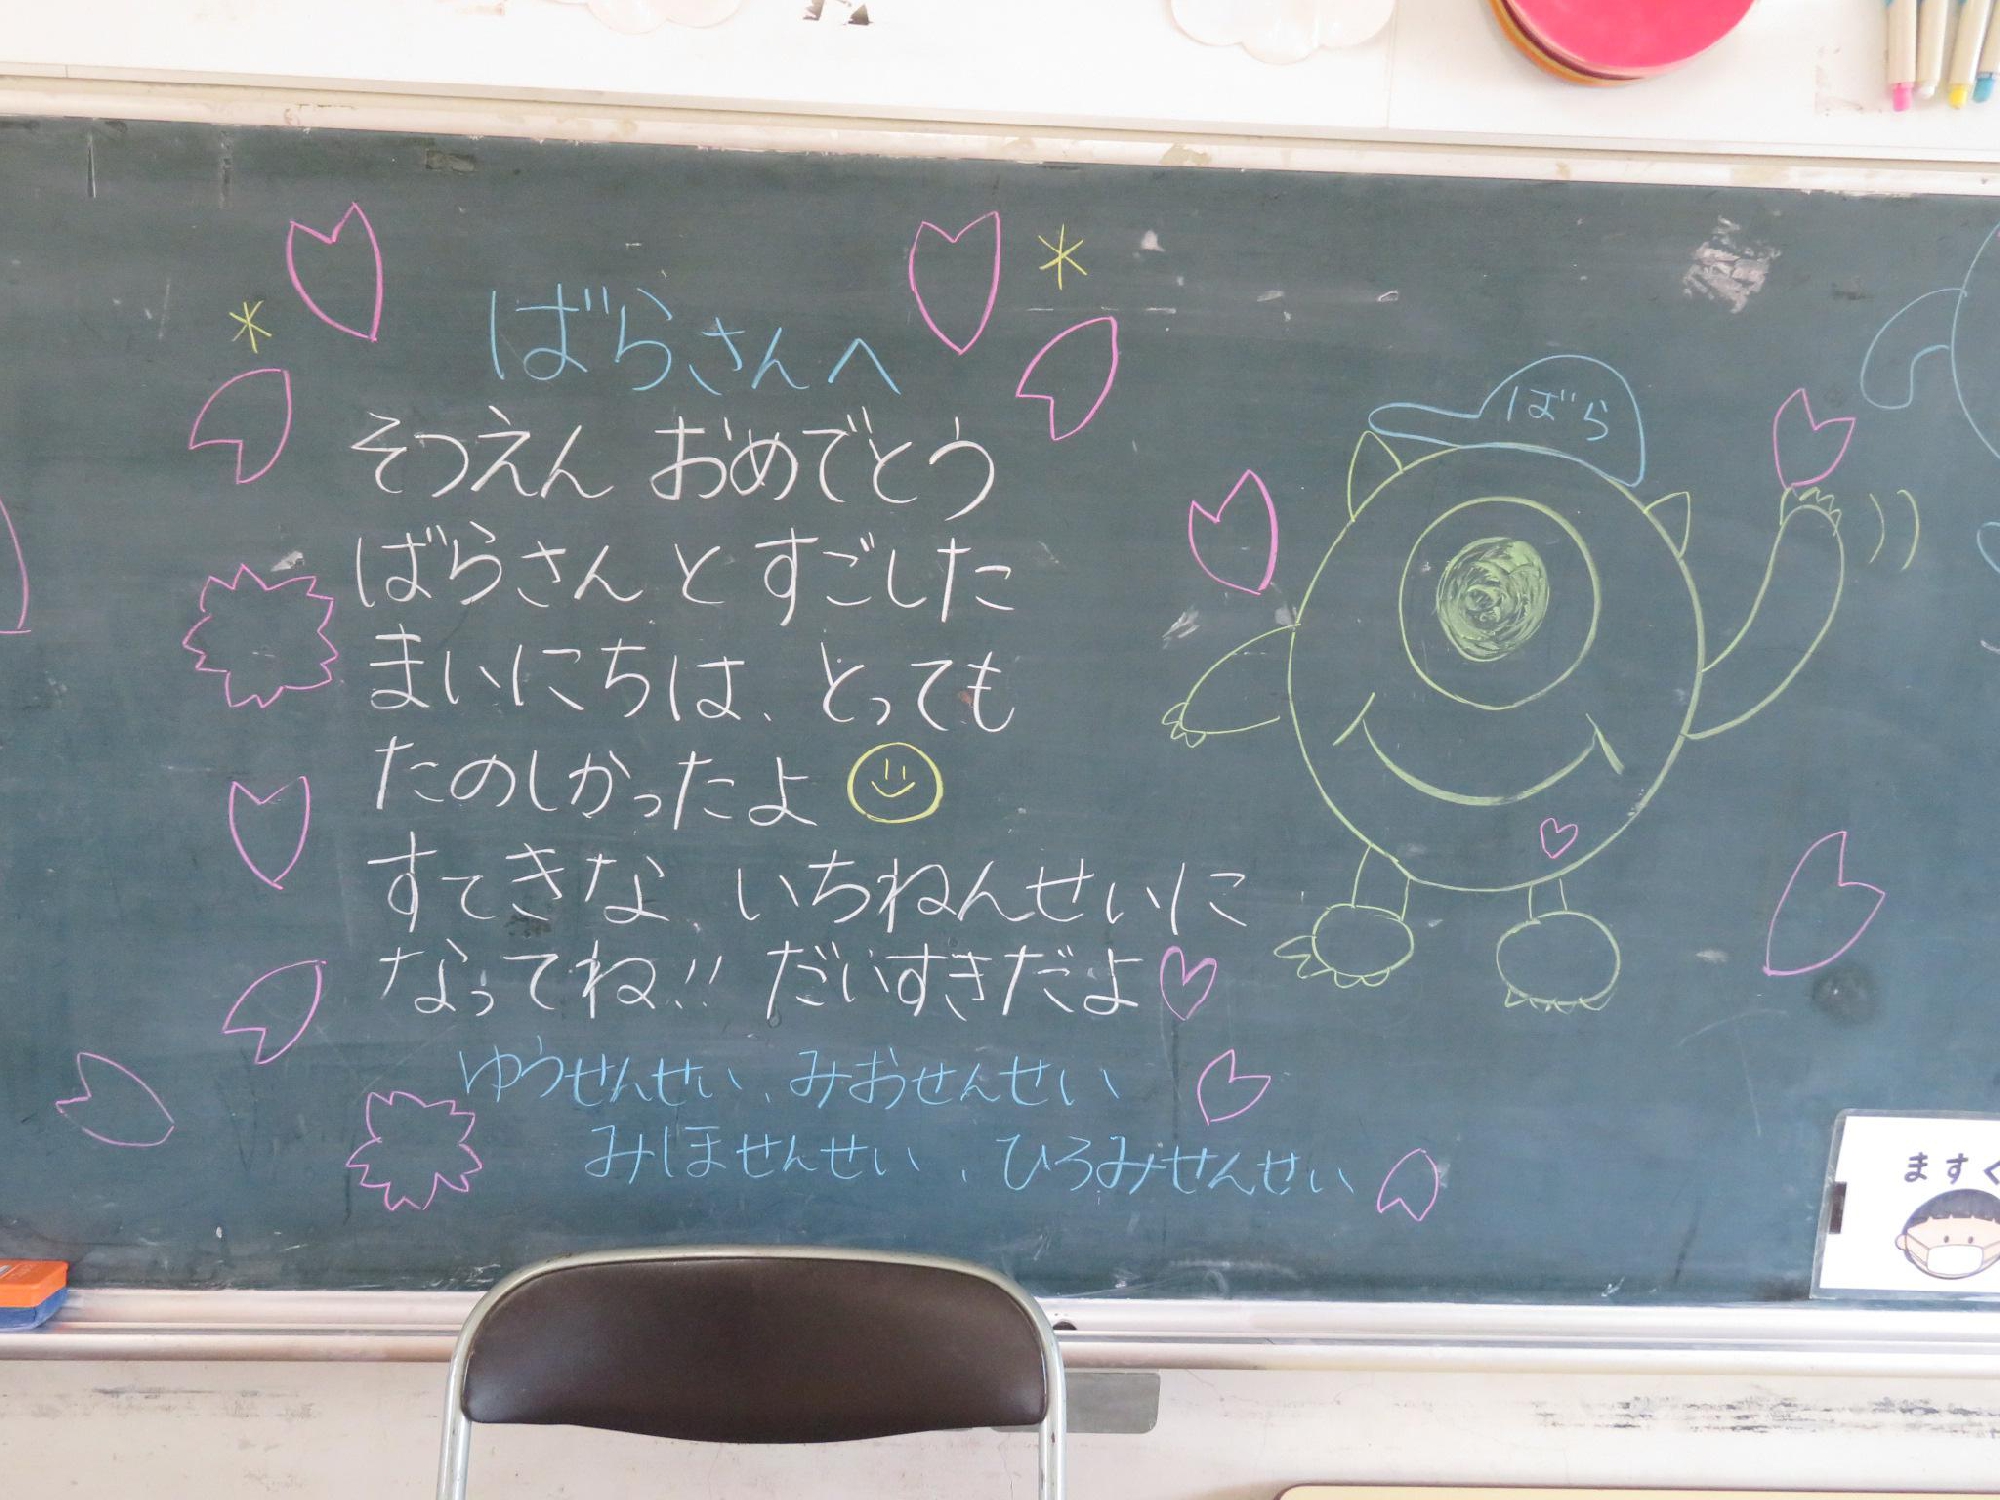 ばらさんへ
そつえん おめでとう
ばらさんとすごした
まいにちは、とっても
たのしかったよ
すてきな いちねんせいに
なってね!! だいすきだよ
ゆうせんせい、みおせんせい
みほせんせい、ひろみせんせい
ばら
ますく